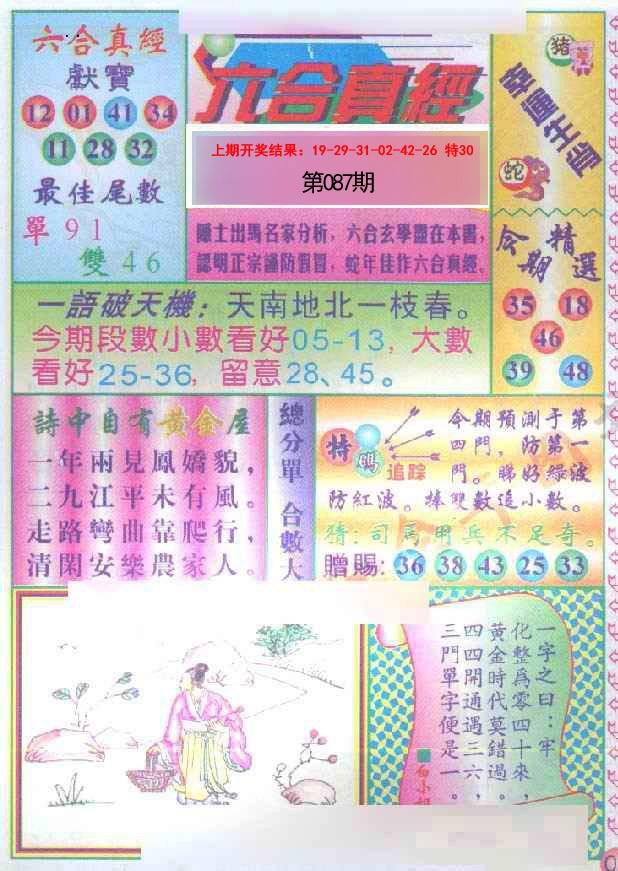 六合真經
獻寶
12 01 41 34
11 28 32
最佳尾數
單 9 1
雙 4 6
六合真經
上期开奖结果：19-29-31-02-42-26 特30
第087期
隱士出馬名家分析，六合玄學盡在本書，
認明正宗謹防假冒，蛇年佳作六合真經。
豬
蛇
今期精選
35 18
46
39 48
一語破天機：天南地北一枝春。
今期段數小數看好05-13，大數
看好25-36，留意28、45。
詩中自有黃金屋
一年兩見鳳嬌貌，
二九江平未有風。
走路彎曲靠爬行，
清閑安樂農家人。
總分單 合數大
特碼
追踪
今期預測于第
四門，防第一
門。睇好綠波
防紅波。捧雙數追小數。
猜：司馬用兵不足奇。
贈賜：36 38 43 25 33
一字之曰：牢
化整爲零四十來，
黃金時代莫錯過。
四四開通遇三六，
三門單字便是一。